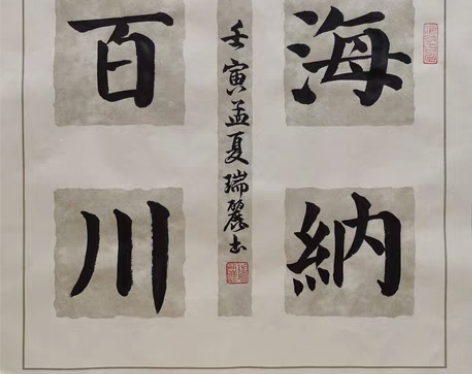 海納
百川
壬寅孟夏瑞麗书